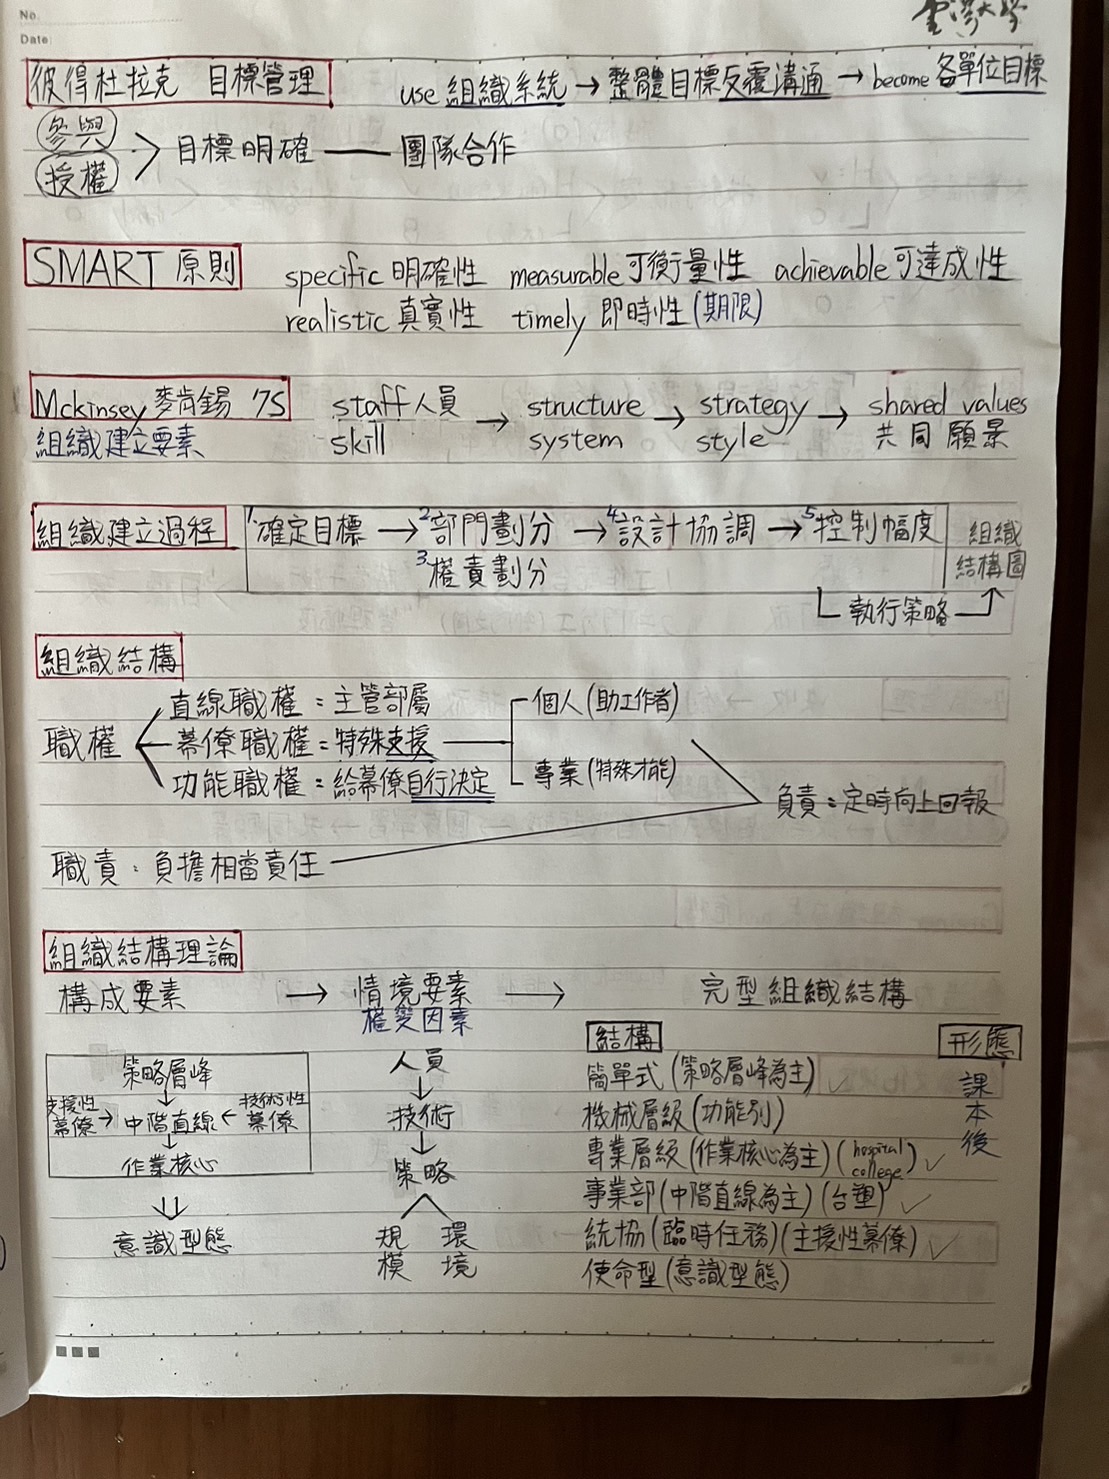 No.
Date
臺灣大學
彼得杜拉克 目標管理 use 組織系統 → 整體目標反覆溝通 → become 各單位目標
參與
授權 > 目標明確 — 團隊合作
SMART 原則 specific 明確性 measurable 可衡量性 achievable 可達成性
realistic 真實性 timely 即時性 (期限)
Mckinsey 麥肯錫 '7S staff 人員 → structure → strategy → shared values
組織建立要素 skill system style 共同願景
組織建立過程 1確定目標 → 2部門劃分 → 4設計協調 → 5控制幅度 組織
3權責劃分 結構圖
執行策略
組織結構
直線職權 = 主管部屬 個人 (助工作者)
職權 幕僚職權 = 特殊支援
專業 (特殊才能)
功能職權 = 給幕僚自行決定
負責 = 定時向上回報
職責 : 負擔相當責任
組織結構理論
構成要素 → 情境要素 → 完型組織結構
權變因素
結構 形態
策略層峰 人員 簡單式 (策略層峰為主) ✓ 課本後
支援性幕僚 → 中階直線 ← 技術性幕僚 技術 機械層級 (功能別)
作業核心 策略 專業層級 (作業核心為主) (hospital college) ✓
事業部 (中階直線為主) (台塑) ✓
意識型態 規模 環境 統協 (臨時任務) (主援性幕僚) ✓
使命型 (意識型態)